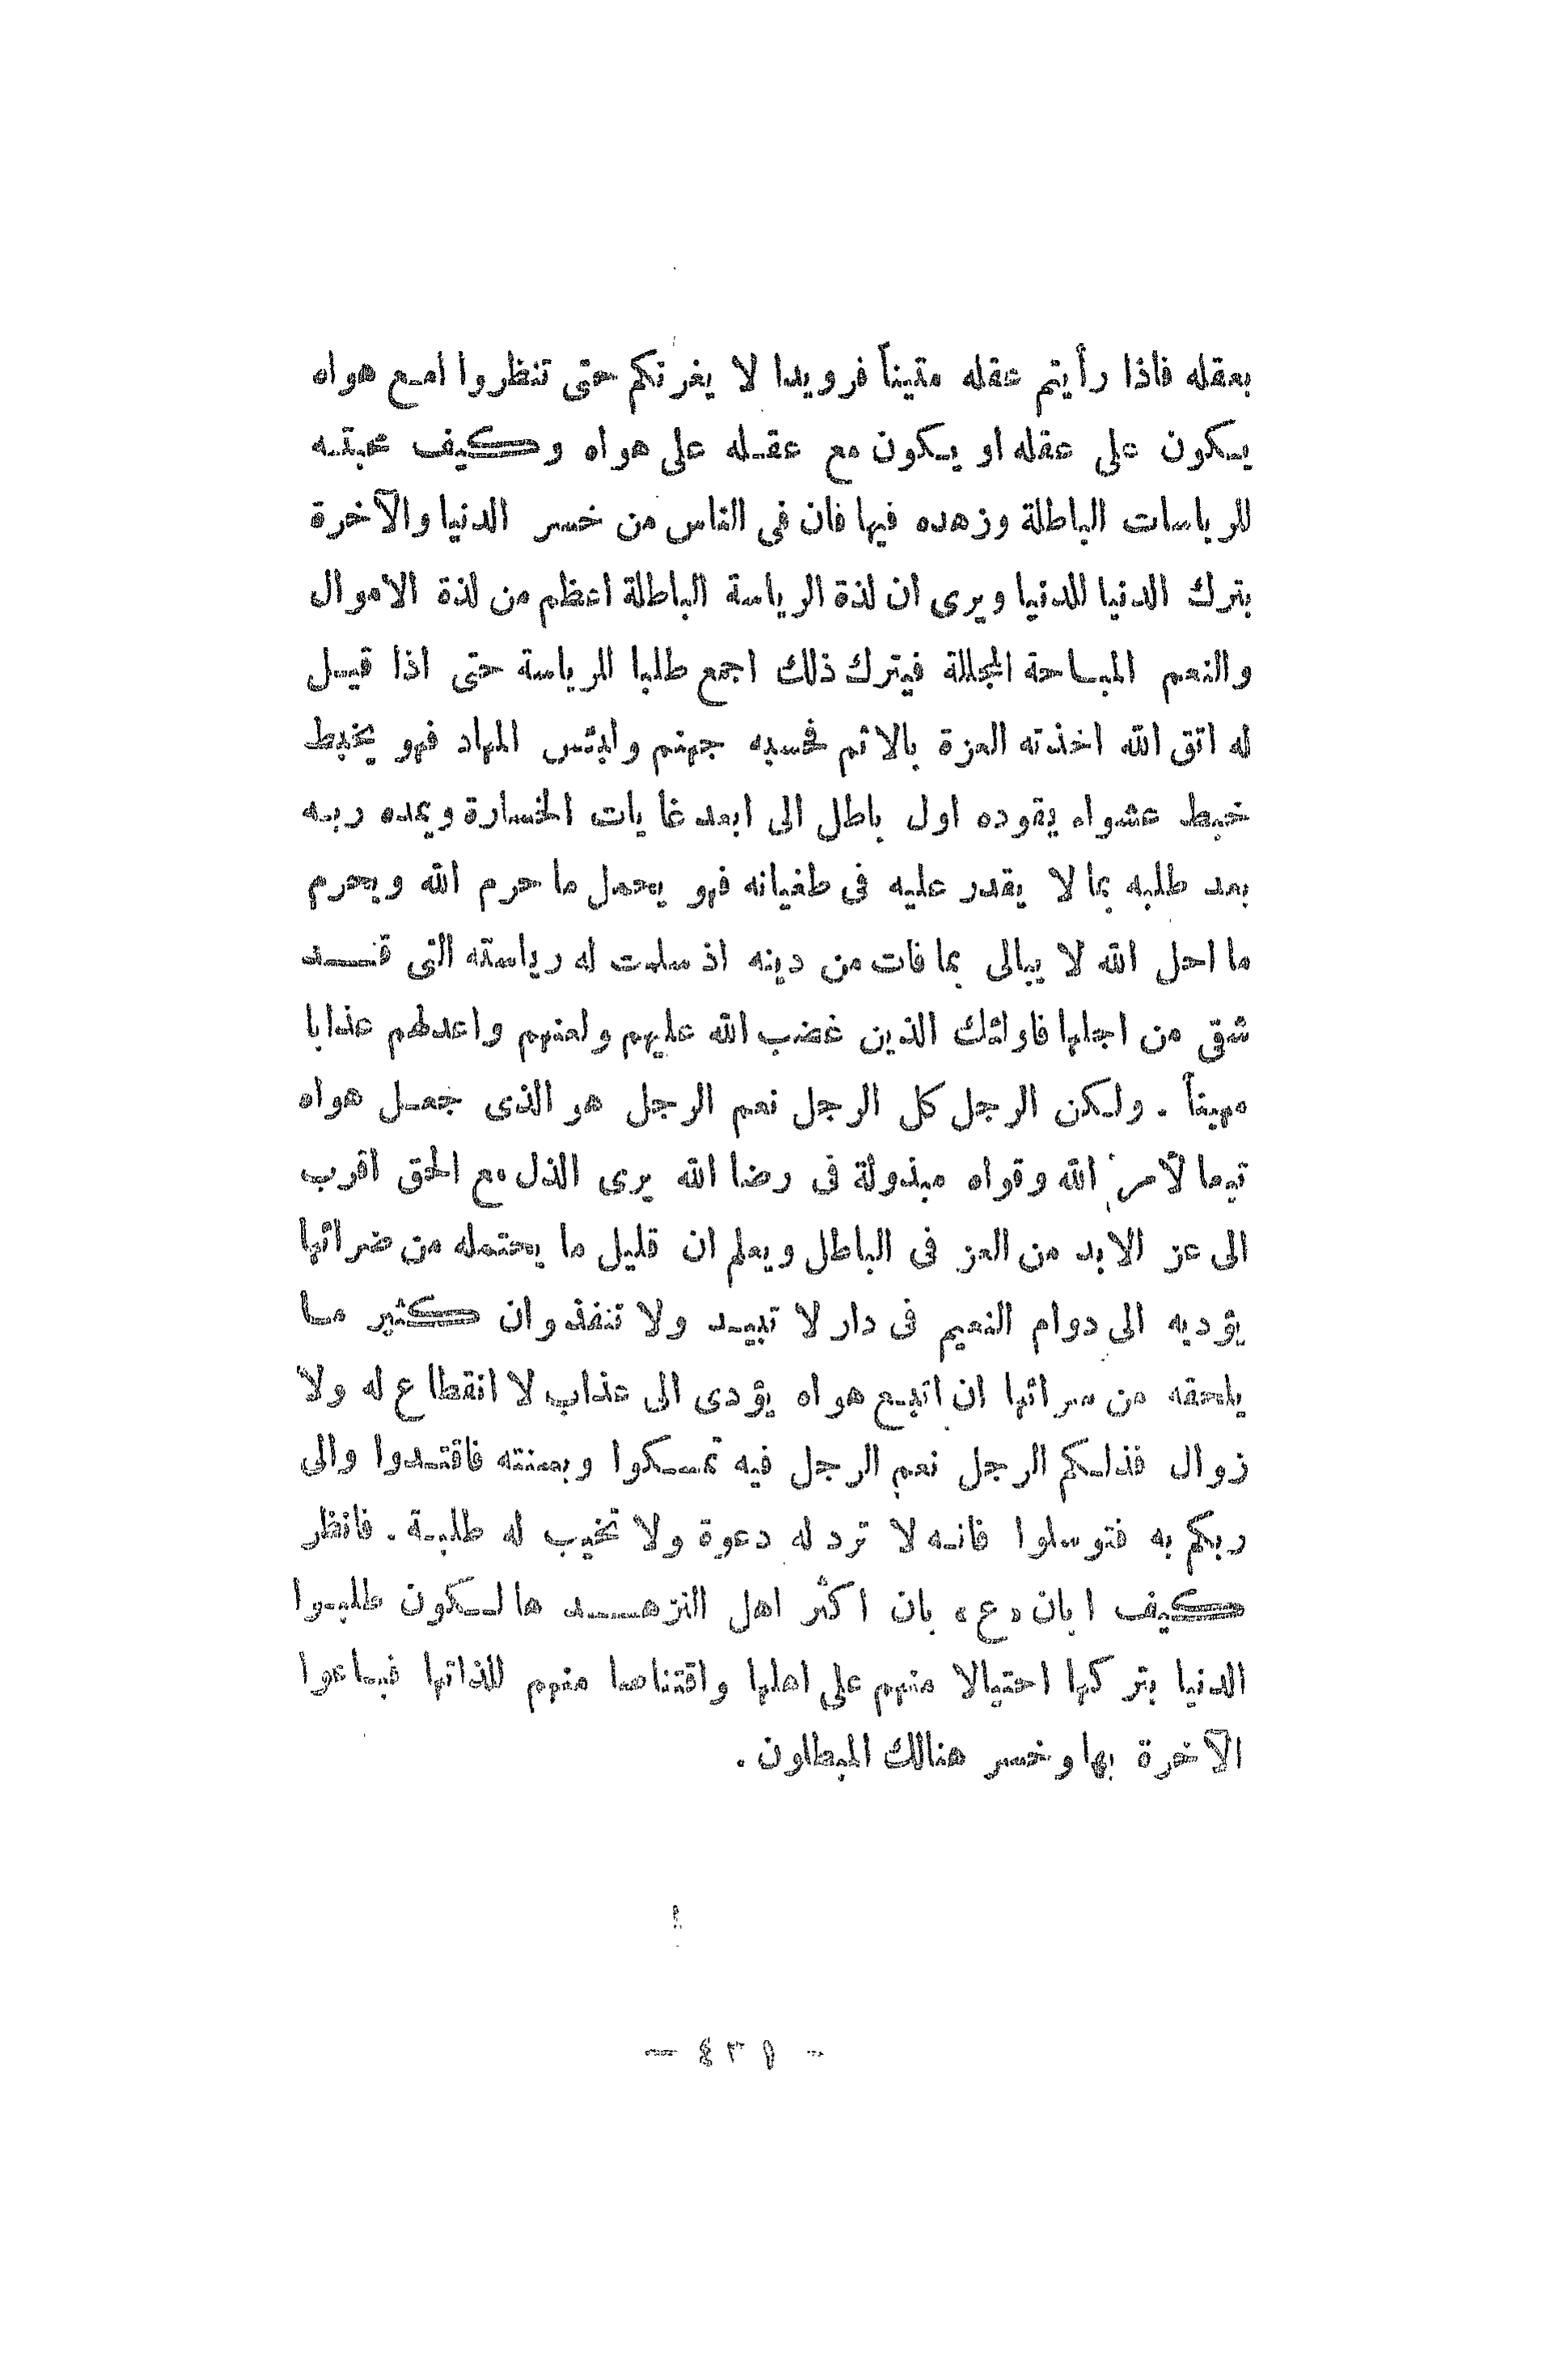 بعقله فاذا رأيتم عقله متيناً فرويدا لا يغرنكم حتى تنظروا امع هواه
يكون على عقله او يكون مع عقله على هواه وكيف محبته
للرياسات الباطلة وزهده فيها فان في الناس من خسر الدنيا والآخرة
بترك الدنيا للدنيا ويرى ان لذة الرياسة الباطلة اعظم من لذة الاموال
والنعم المباحة المحللة فيترك ذلك اجمع طلبا للرياسة حتى اذا قيل
له اتق الله اخذته العزة بالاثم فحسبه جهنم ولبئس المهاد فهو يخبط
خبط عشواء يقوده اول باطل الى ابعد غايات الخسارة ويمده ربه
بعد طلبه بما لا يقدر عليه في طغيانه فهو يحل ما حرم الله ويحرم
ما احل الله لا يبالى بما فات من دينه اذ سلمت له رياسته التي قد
شقى من اجلها فاولئك الذين غضب الله عليهم ولعنهم واعد لهم عذابا
مهيناً . ولكن الرجل كل الرجل نعم الرجل هو الذي جعل هواه
تبعا لأمر الله وقواه مبذولة في رضا الله يرى الذل مع الحق اقرب
الى عز الابد من العز في الباطل ويعلم ان قليل ما يحتمله من ضرائها
يؤديه الى دوام النعيم في دار لا تبيد ولا تنفذ وان كثير ما
يلحقه من سرائها ان اتبع هواه يؤدى الى عذاب لا انقطاع له ولا
زوال فذلكم الرجل نعم الرجل فيه تمسكوا وبسنته فاقتدوا والى
ربكم به فتوسلوا فانه لا ترد له دعوة ولا تخيب له طلبة . فانظر
كيف ابان «ع» بان اكثر اهل التزهد هالكون طلبوا
الدنيا بتركها احتيالا منهم على اهلها واقتناصا منهم للذاتها فباعوا
الآخرة بها وخسر هنالك المبطلون .